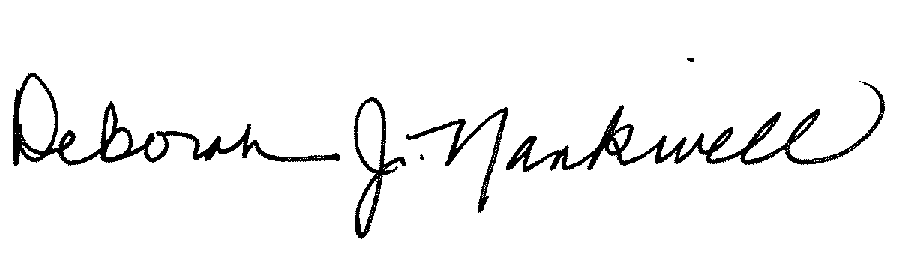 Deborah J. Nankwell